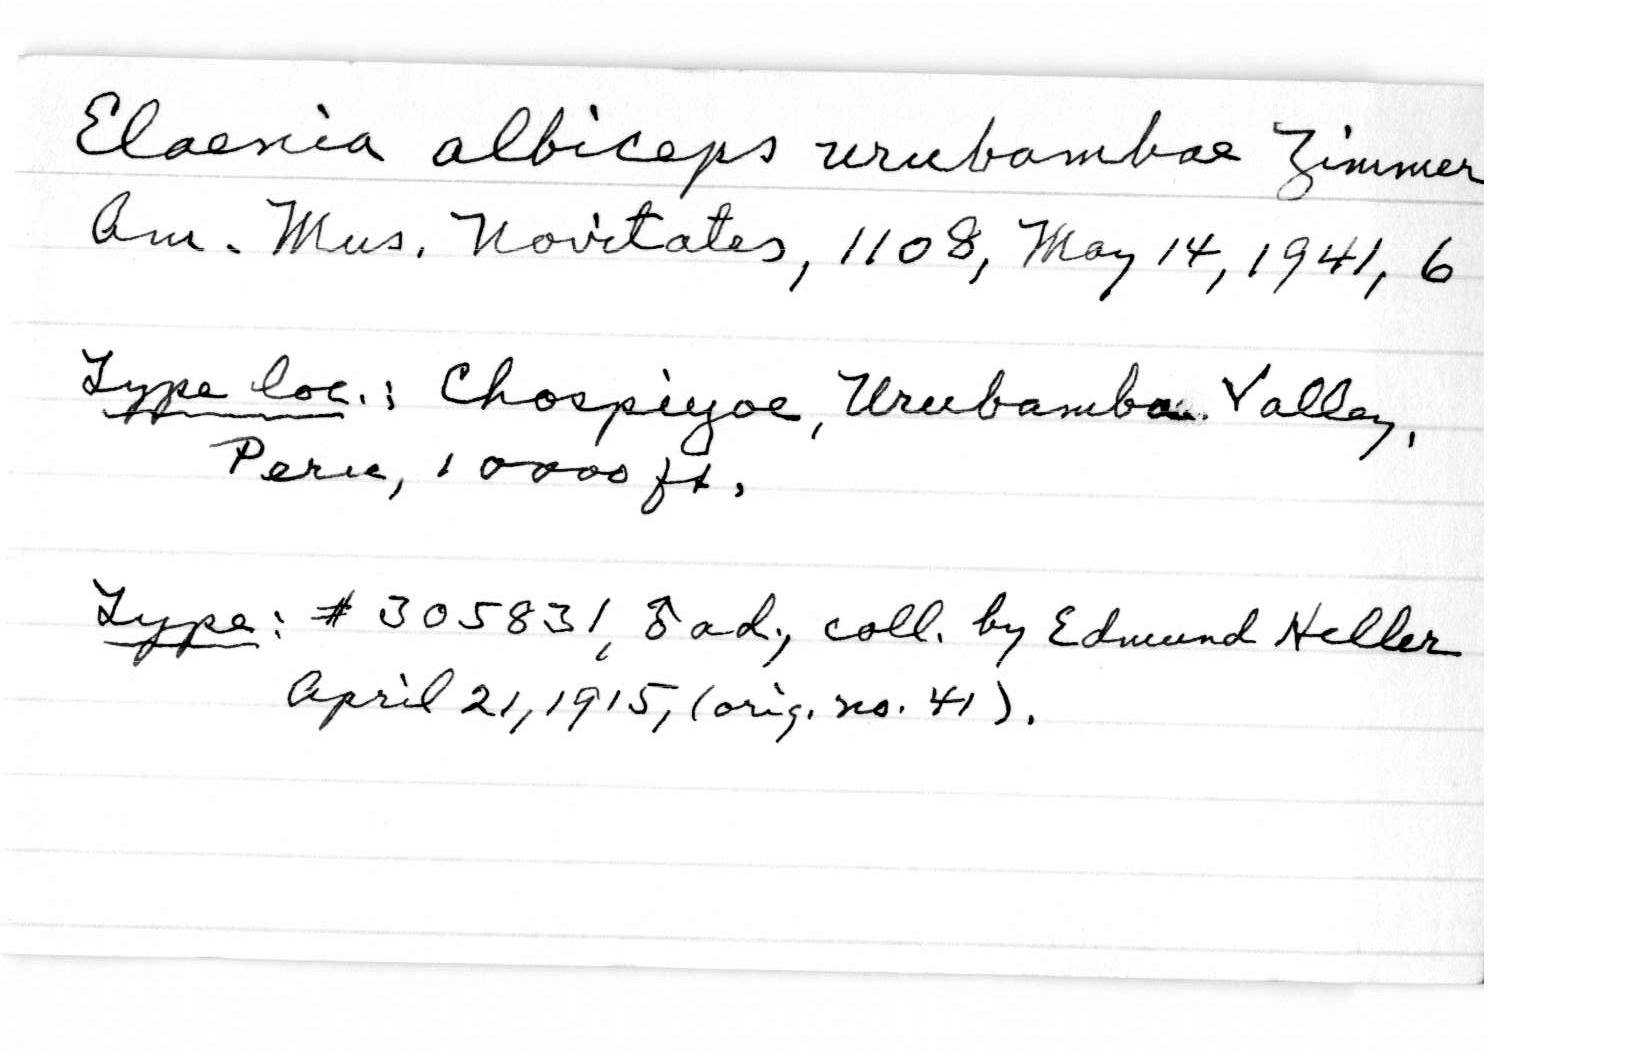 Elaenia albiceps urubambae Zimmer
Am. Mus. Novitates, 1108, May 14, 1941, 6
Type loc.: Chospiyoc, Urubamba Valley,
Peru, 10000 ft.
Type: # 305831, ♂ ad., coll. by Edmund Heller
April 21, 1915, (orig. no. 41).